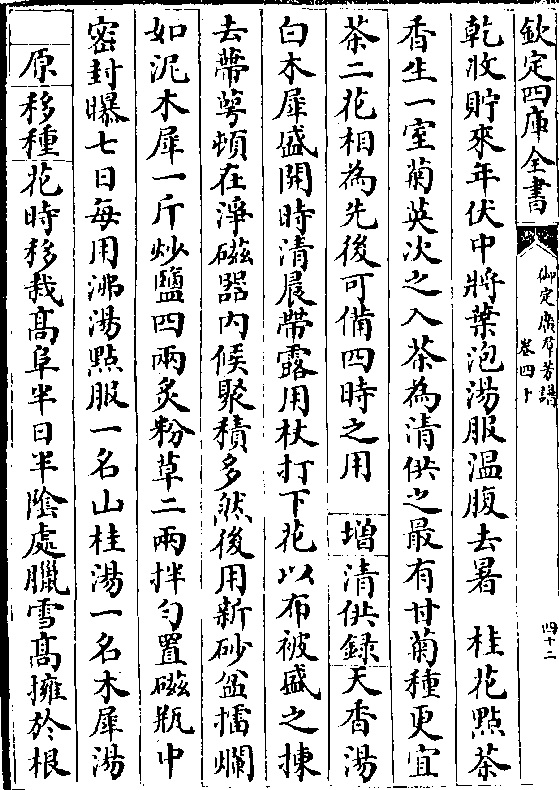 欽定四庫全書
御定廣群芳譜
卷四十
四十二
乾收貯來年伏中將葉泡湯服温腹去暑　桂花點茶
香生一室菊英次之入茶為清供之最有甘菊種更宜
茶二花相為先後可備四時之用　增清供録天香湯
白木犀盛開時清晨帶露用杖打下花以布被盛之揀
去蔕萼頓在淨磁器内候聚積多然後用新砂盆擂爛
如泥木犀一斤炒鹽四兩炙粉草二兩拌匀置磁瓶中
密封曝七日每用沸湯點服一名山桂湯一名木犀湯
原移種花時移栽髙阜半日半隂處臘雪髙擁於根